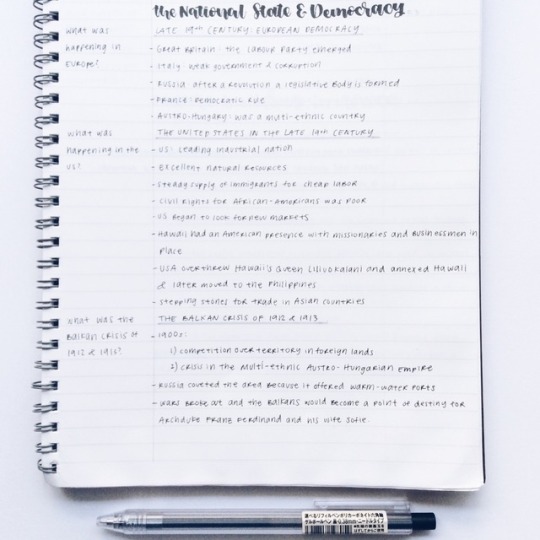 the National State & Democracy
what was happening in Europe?
LATE 19TH CENTURY: EUROPEAN DEMOCRACY
- Great Britain: the Labour Party emerged
- Italy: weak government & corruption
- Russia: after a revolution a legislative body is formed
- France: democratic rule
- Austro-Hungary: was a multi-ethnic country
what was happening in the US?
THE UNITED STATES IN THE LATE 19TH CENTURY
- US: Leading industrial nation
- Excellent natural resources
- Steady supply of immigrants for cheap labor
- Civil rights for African-Americans was poor
- US began to look for new markets
- Hawaii had an American presence with missionaries and businessmen in
place
- USA overthrew Hawaii's Queen Liliuokalani and annexed Hawaii
& later moved to the Philippines
- stepping stones for trade in Asian countries
What was the Balkan Crisis of 1912 & 1913?
THE BALKAN CRISIS OF 1912 & 1913
- 1900s:
1) competition over territory in foreign lands
2) crisis in the multi-ethnic Austro-Hungarian Empire
- Russia coveted the area because it offered warm-water ports
- wars broke out and the Balkans would become a point of destiny for
Archduke Franz Ferdinand and his wife Sofie.
選べるリフィルペンポリカーボネイト六角軸
ゲルボールペン 黒 0.38mm・ニードルタイプ